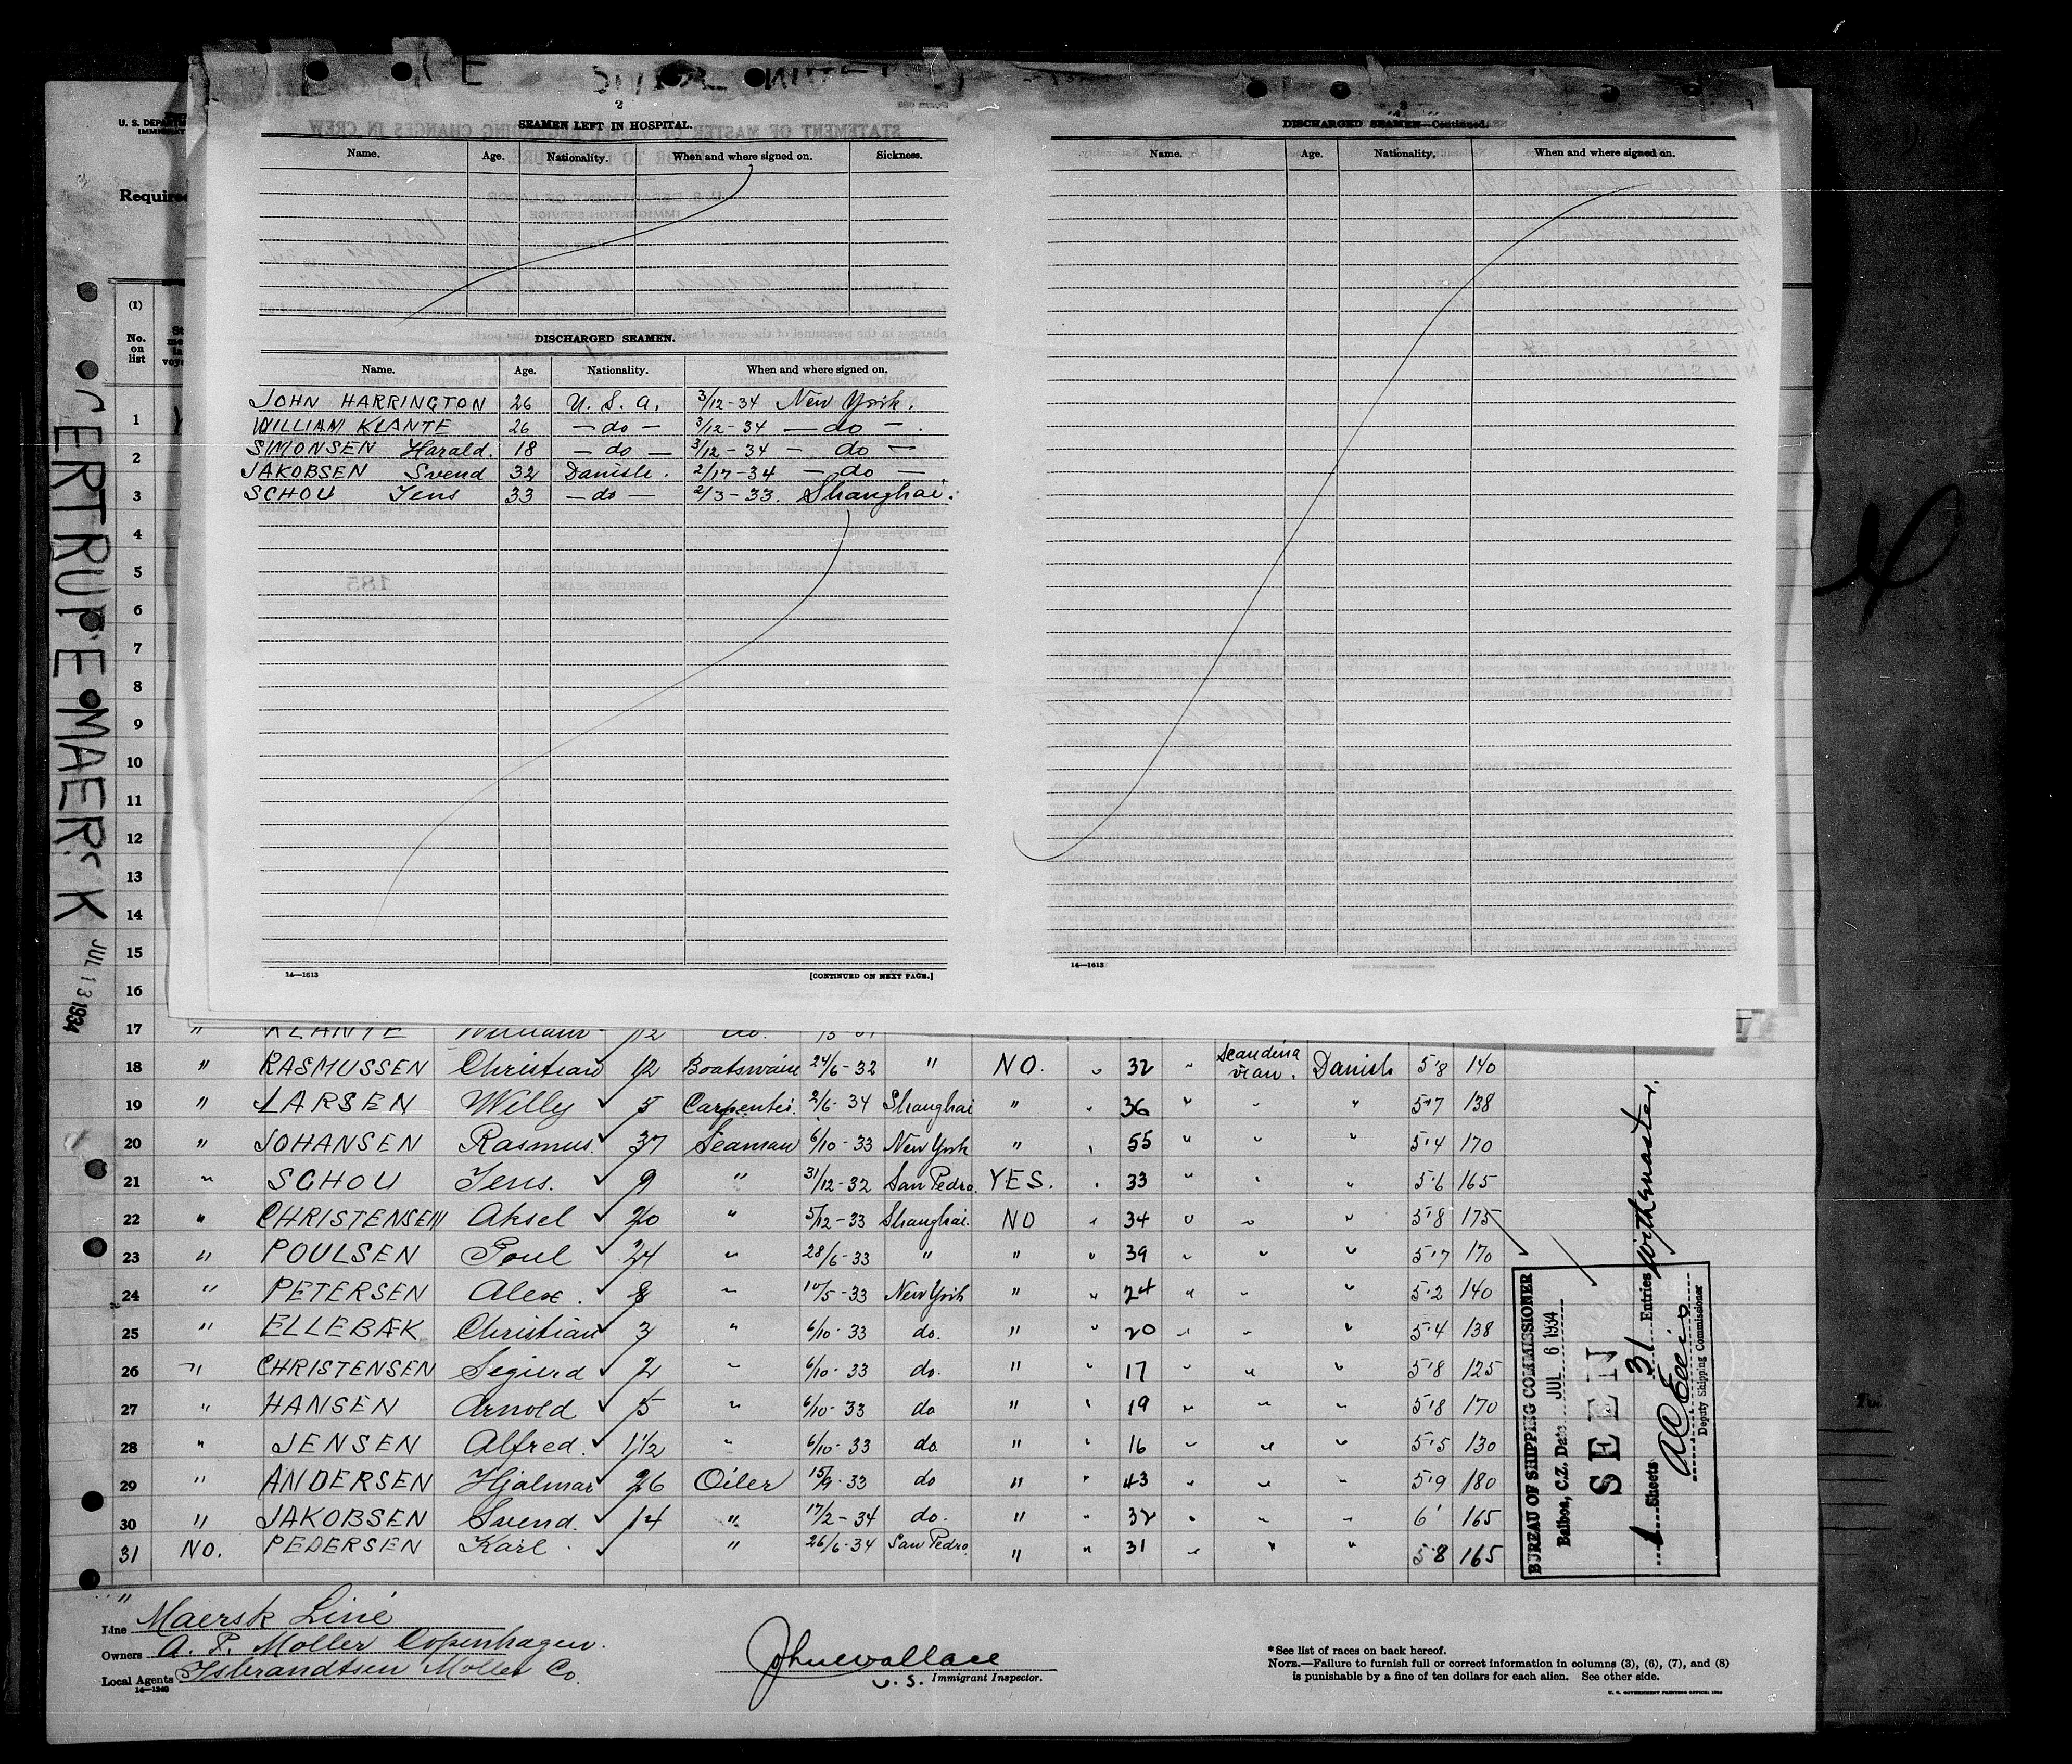 U. S. DEPARTM
IMMIGRAT
Required
2
SEAMEN LEFT IN HOSPITAL.
Name. Age. Nationality. When and where signed on. Sickness.
DISCHARGED SEAMEN.
Name. Age. Nationality. When and where signed on.
JOHN HARRINGTON 26 U. S. A. 3/12-34 New York.
WILLIAM KLANTE 26 — do — 3/12-34 — do —
SIMONSEN Harald. 18 — do — 3/12-34 — do —
JAKOBSEN Svend 32 Danish. 2/17-34 — do —
SCHOU Jens 33 — do — 2/3-33. Shanghai.
14—1613 [CONTINUED ON NEXT PAGE.]
3
DISCHARGED SEAMEN—Continued.
Name. Age. Nationality. When and where signed on.
14—1613
GERTRUDE MAERSK JUL 13 1934
(1)
No. on list
1
2
3
4
5
6
7
8
9
10
11
12
13
14
15
16
17 " KLANTE William 12 do.
18 " RASMUSSEN Christian 12 Boatswain 24/6-32 " NO. " 32 " Scandinavian. Danish 5'8 140
19 " LARSEN Willy 5 Carpenter. 2/6-34 Shanghai " " 36 " " " 5'7 138
20 " JOHANSEN Rasmus. 37 Seaman 6/10-33 New York " " 55 " " " 5'4 170
21 " SCHOU Jens. 9 " 31/12-32 San Pedro. YES. " 33 " " " 5'6 165
22 " CHRISTENSEN Aksel 20 " 5/12-33 Shanghai. NO " 34 " " " 5'8 175
23 " POULSEN Poul 24 " 28/6-33 " " " 39 " " " 5'7 170
24 " PETERSEN Alex. 8 " 10/5-33 New York " " 24 " " " 5'2 140
25 " ELLEBÆK Christian 3 " 6/10-33 do. " " 20 " " " 5'4 138
26 " CHRISTENSEN Segurd 2 " 6/10-33 do. " " 17 " " " 5'8 125
27 " HANSEN Arnold 5 " 6/10-33 do " " 19 " " " 5'8 170
28 " JENSEN Alfred. 1 1/2 " 6/10-33 do. " " 16 " " " 5'5 130
29 " ANDERSEN Hjalmar 26 Oiler 15/9-33 do " " 43 " " " 5'9 180
30 " JAKOBSEN Svend. 14 " 17/2-34 do. " " 32 " " " 6' 165
31 NO. PEDERSEN Karl " 26/6-34 San Pedro. " " 31 " " " 5'8 165
BUREAU OF SHIPPING COMMISSIONER
Balboa, C.Z. Date JUL 6 1934
SEEN
1 Sheets 31 Entries with master.
Deputy Shipping Commissioner
Line Maersk Line
Owners A. P. Moller Copenhagen.
Local Agents Isbrandtsen Moller Co.
14—1240
John Wallace
U. S. Immigrant Inspector.
* See list of races on back hereof.
NOTE.—Failure to furnish full or correct information in columns (3), (6), (7), and (8)
is punishable by a fine of ten dollars for each alien. See other side.